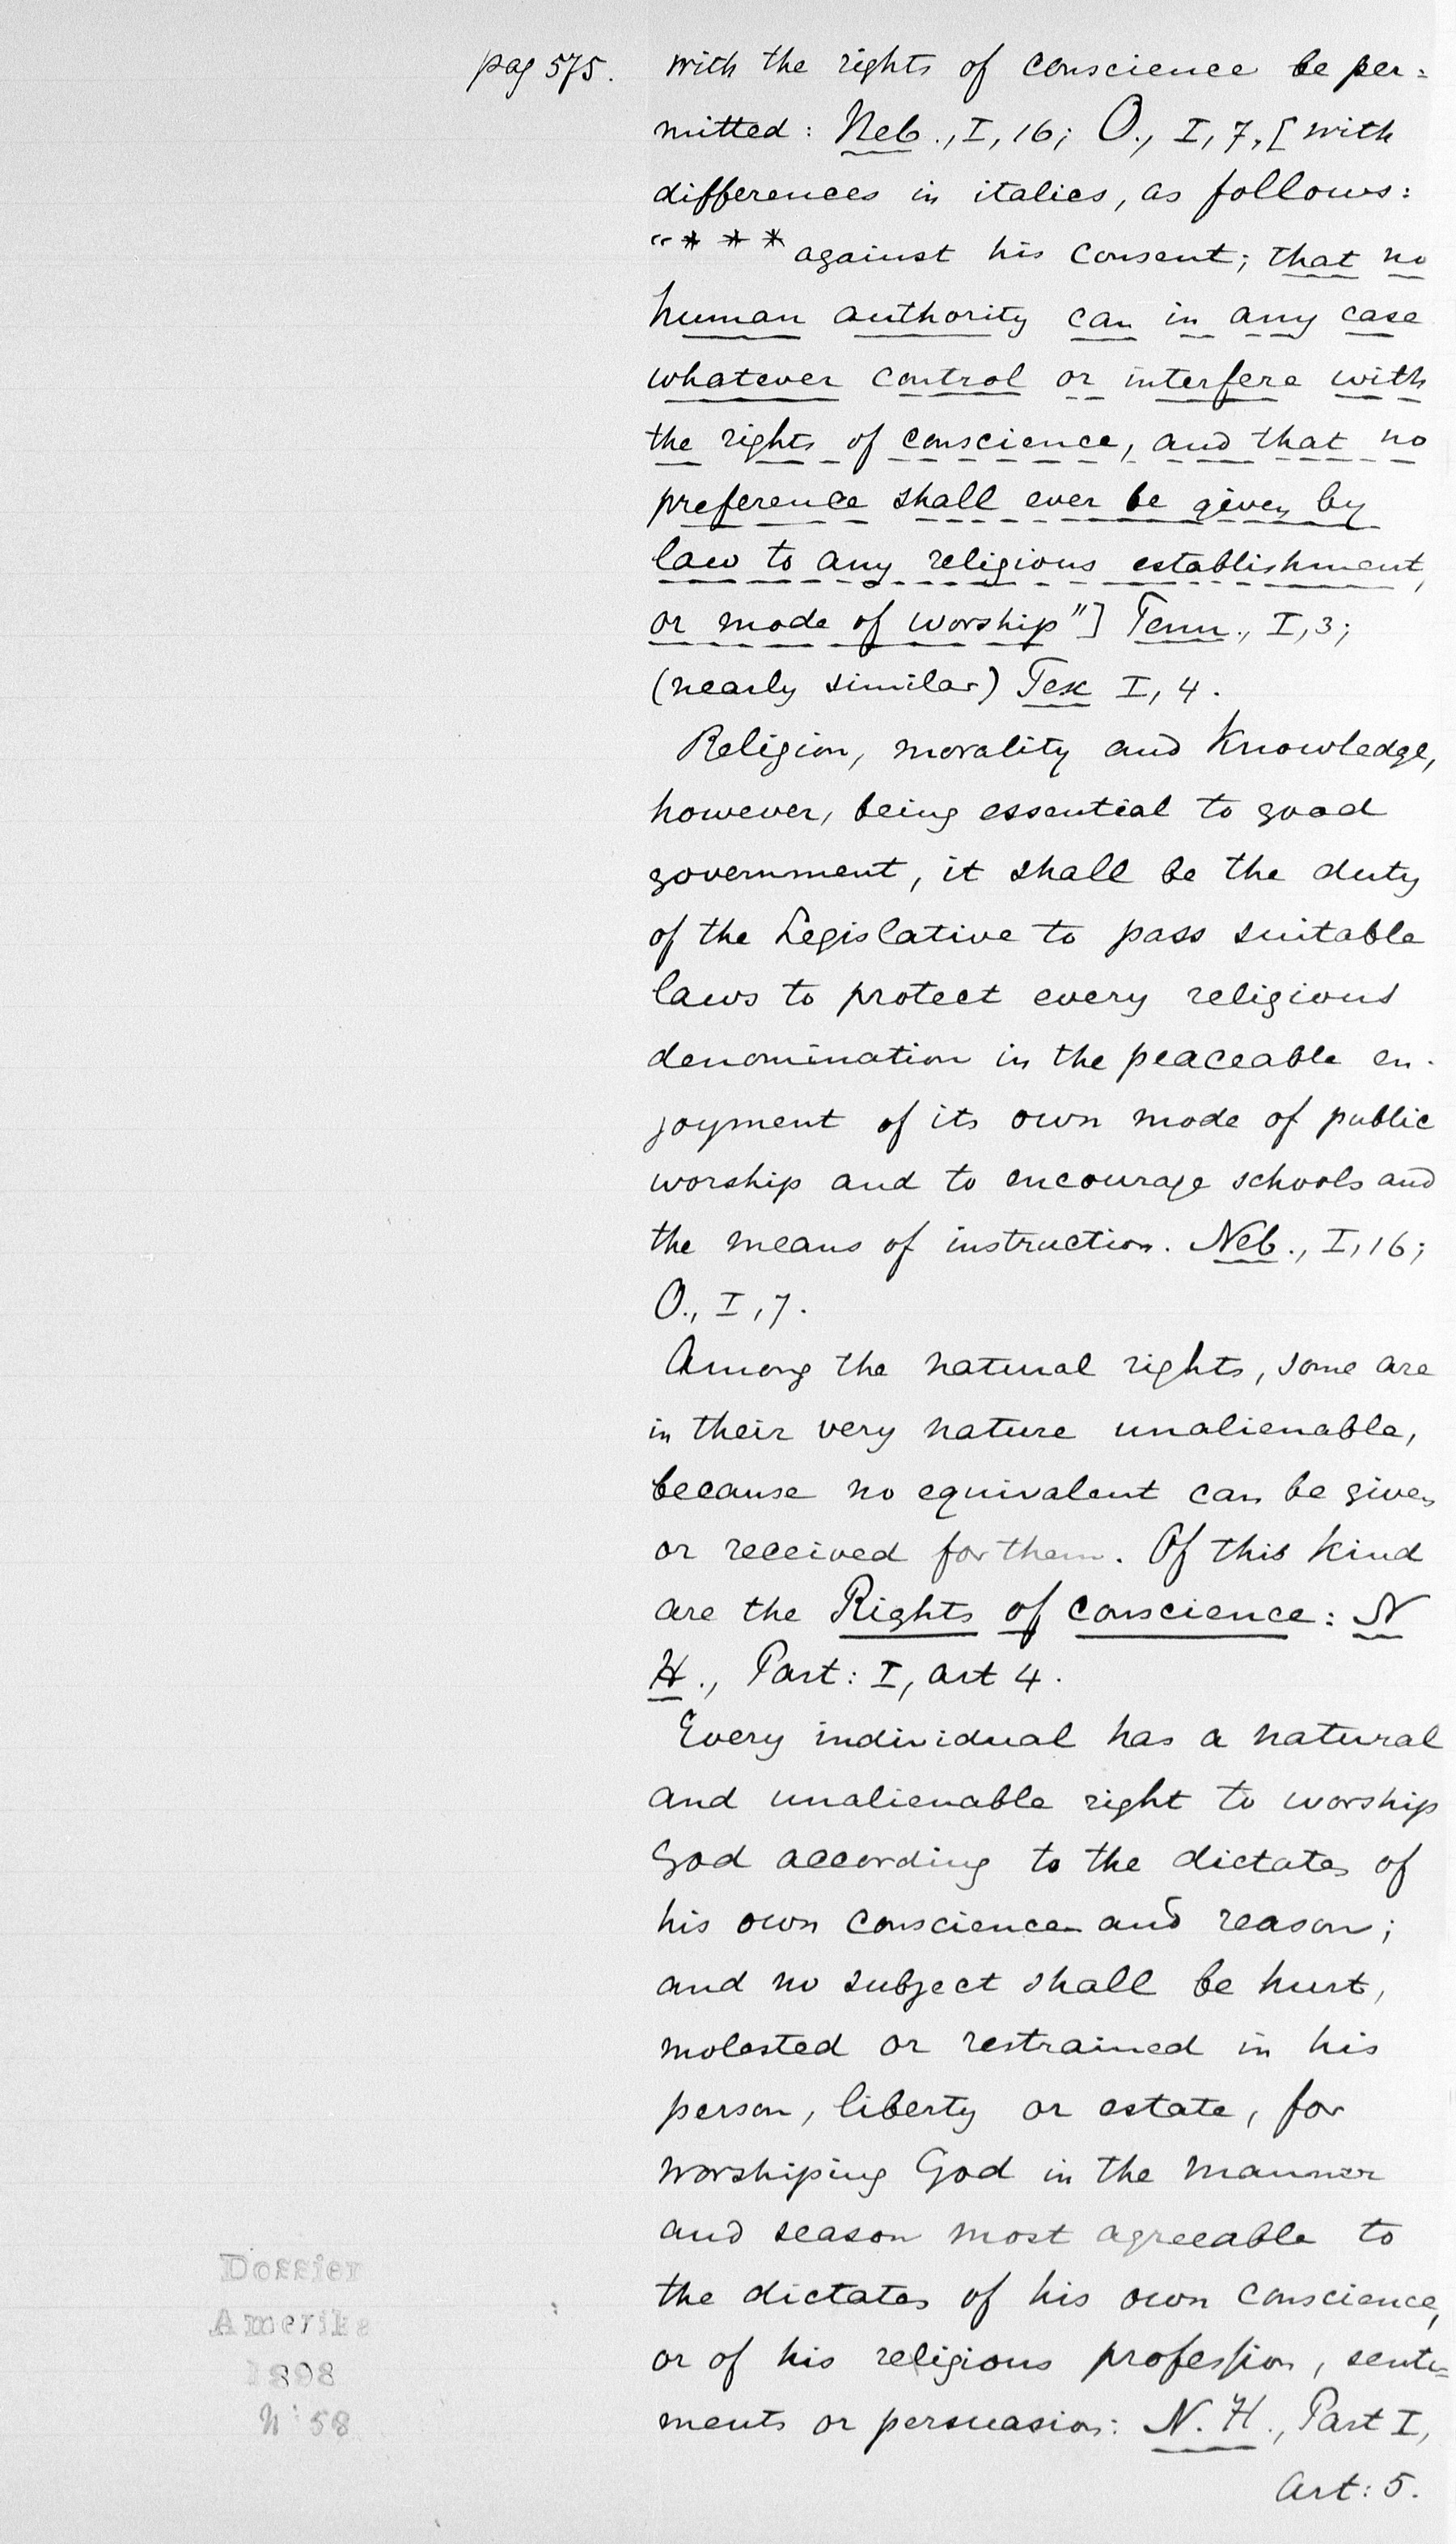 pag 575. with the rights of conscience be per=
mitted: Neb., I, 16; O., I, 7, [with
differences in italics, as follows:
"* * * against his consent; that no
human authority can in any case
whatever control or interfere with
the rights of conscience, and that no
preference shall ever be given by
law to any religious establishment,
or mode of worship"] Tenn., I, 3;
(nearly similar) Tex I, 4.
Religion, morality and Knowledge,
however, being essential to good
government, it shall be the duty
of the Legislative to pass suitable
laws to protect every religious
denomination in the peaceable en-
joyment of its own mode of public
worship and to encourage schools and
the means of instruction. Neb., I, 16;
O., I, 7.
Among the natural rights, some are
in their very nature unalienable,
because no equivalent can be given
or received for them. Of this kind
are the Rights of conscience: N
H., Part: I, art 4.
Every individual has a natural
and unalienable right to worship
God according to the dictates of
his own conscience and reason;
and no subject shall be hurt,
molested or restrained in his
person, liberty or estate, for
worshiping God in the manner
and season most agreeable to
the dictates of his own conscience,
or of his religious profession, senti=
ments or persuasion: N. H., Part I,
Art: 5.
Dossier
Amerika
1898
N: 58